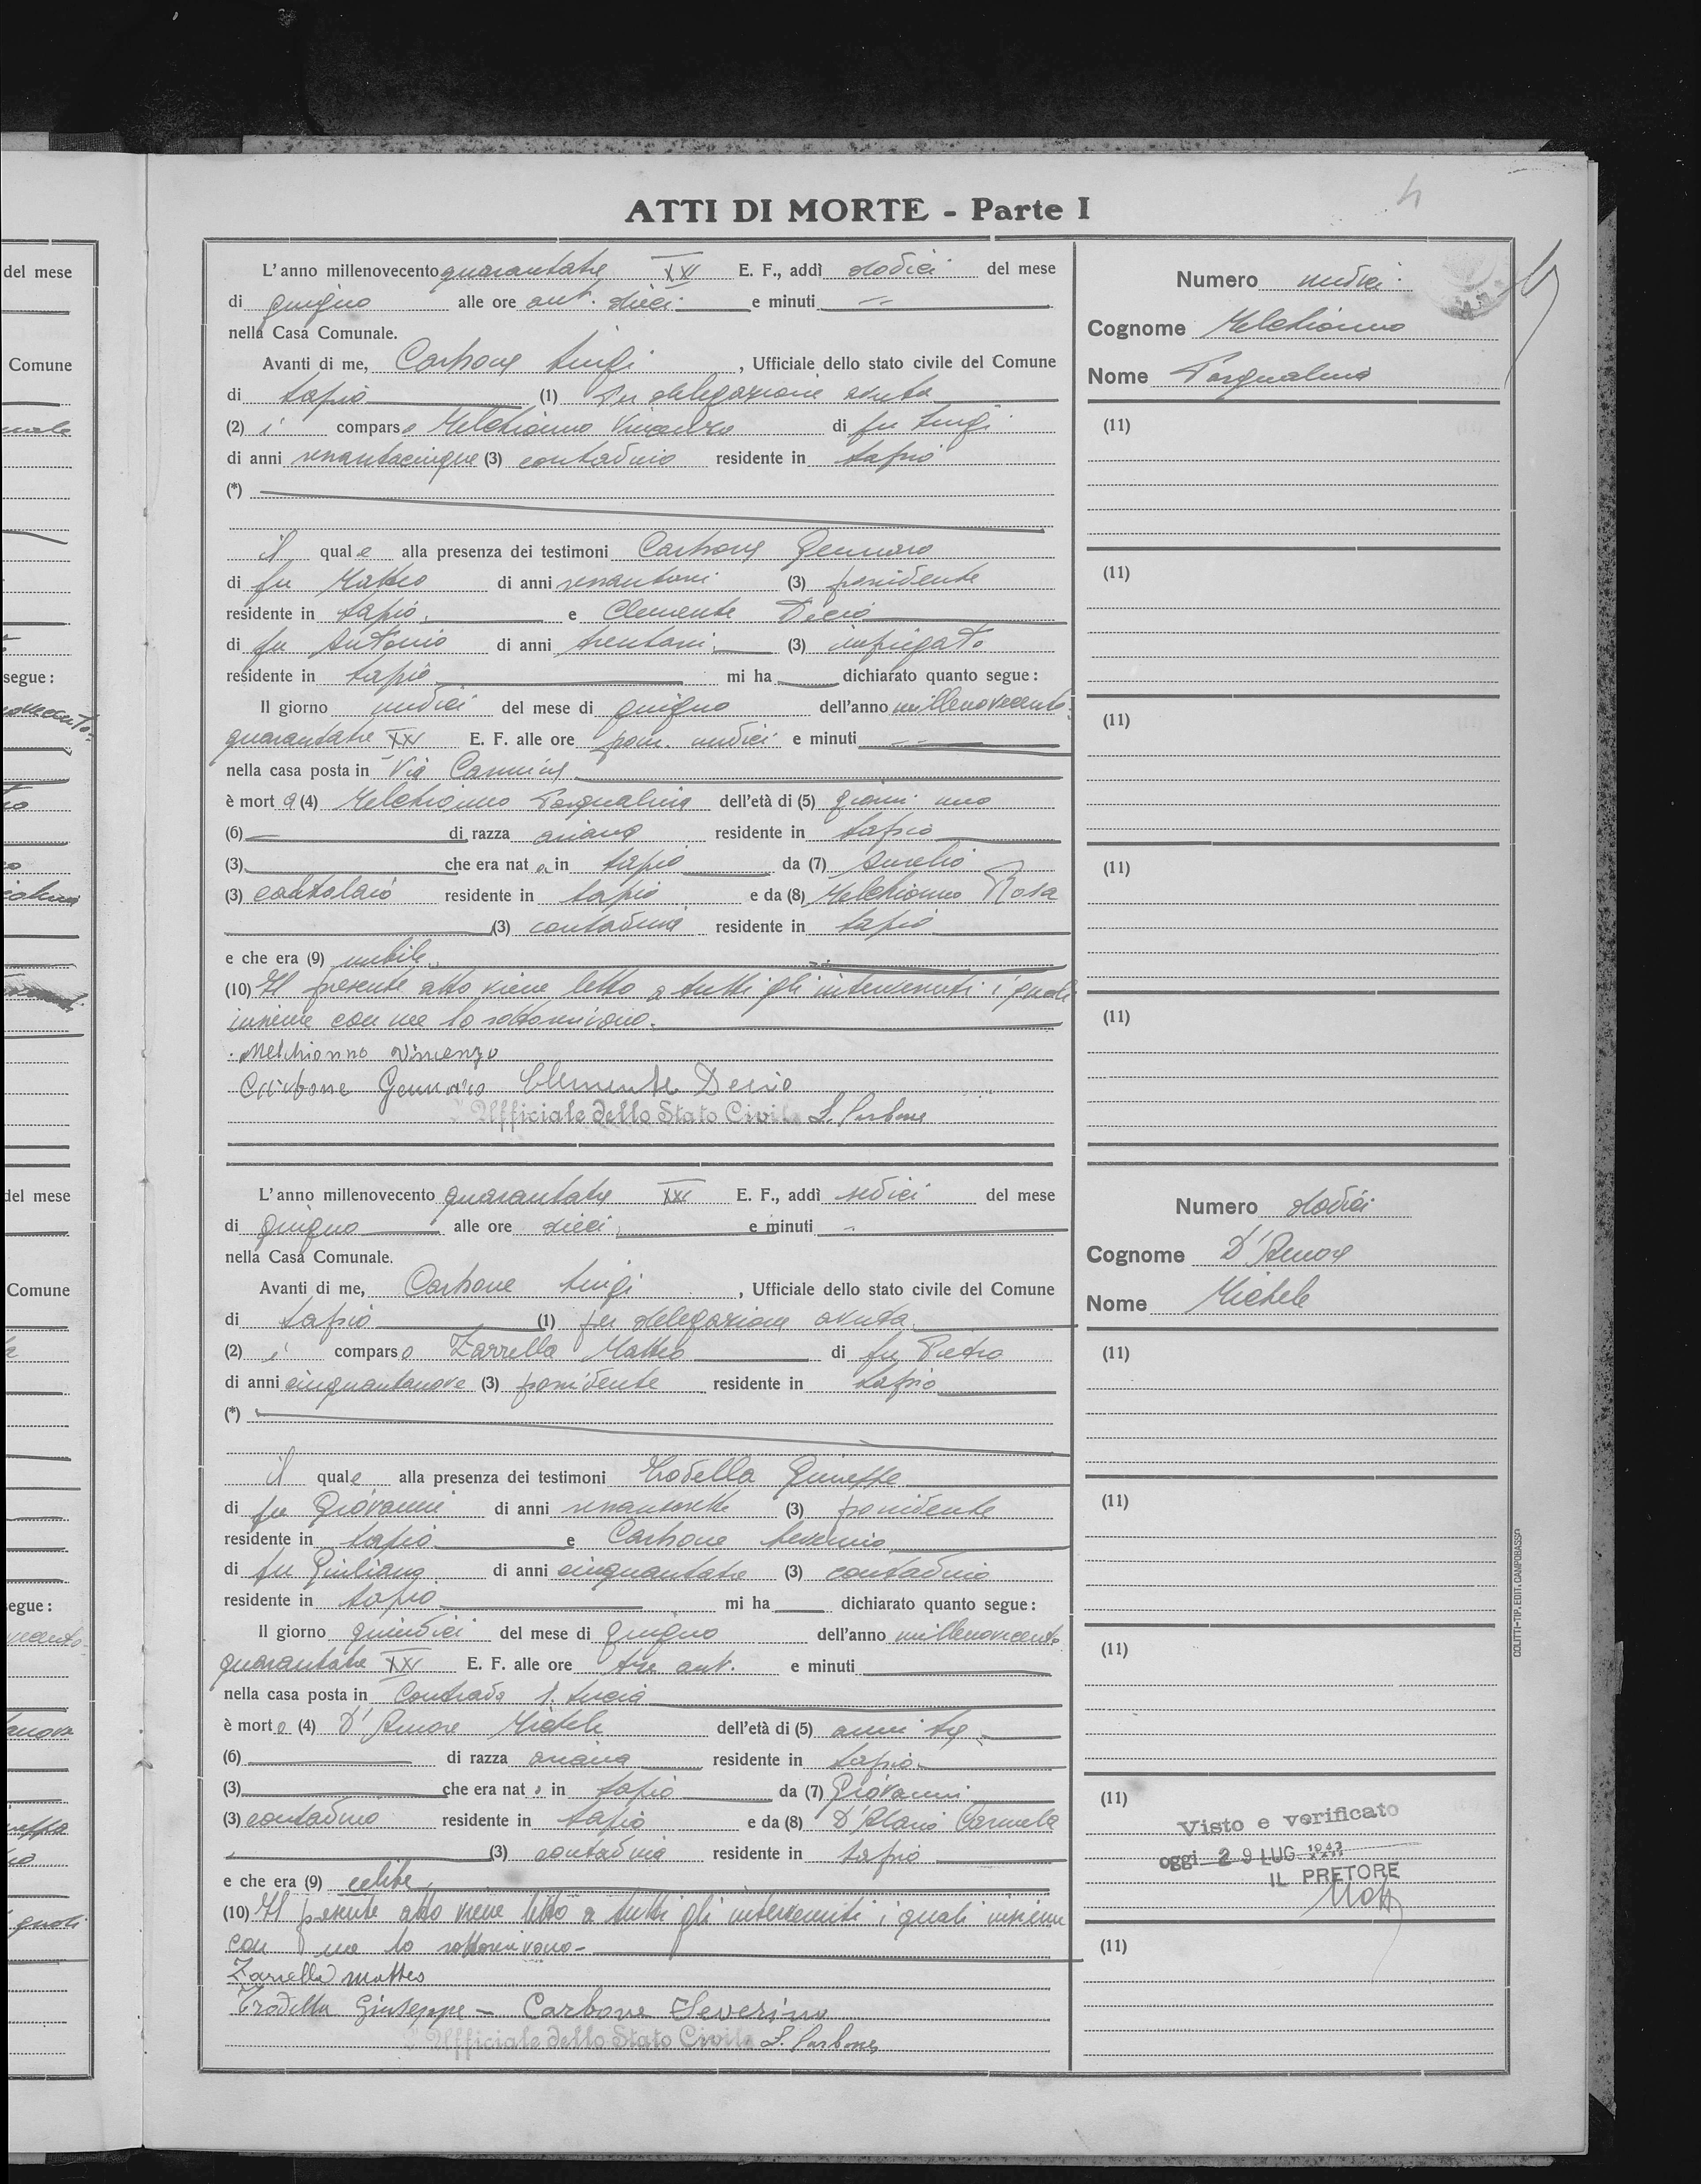 ATTI DI MORTE - Parte I
L'anno millenovecento quarantatre XXI E. F., addì dodici del mese
di giugno alle ore ant. dieci e minuti
nella Casa Comunale.
Avanti di me, Carbone Luigi, Ufficiale dello stato civile del Comune
di Lapio (1) per delegazione avuta
(2) è comparso Melchionno Vincenzo di fu Luigi
di anni sessantacinque (3) contadino residente in Lapio
(*)
il quale alla presenza dei testimoni Carbone Gennaro
di fu Matteo di anni (3) possidente
residente in Lapio e Clemente Decio
di fu Antonio di anni (3) impiegato
residente in Lapio mi ha dichiarato quanto segue:
Il giorno undici del mese di giugno dell'anno millenovecento-
quarantatre XXI E. F. alle ore pom. undici e minuti
nella casa posta in Via
è morta (4) Melchionno Pasqualina dell'età di (5) giorni uno
(6) di razza ariana residente in Lapio
(3) che era nata in Lapio da (7) Aurelio
(3) residente in Lapio e da (8) Melchionno Rosa
(3) contadina residente in Lapio
e che era (9) nubile
(10) Il presente atto viene letto a tutti gli intervenuti i quali
insieme con me lo sottoscrivono.
Melchionno Vincenzo
Carbone Gennaro Clemente Decio
L'Ufficiale dello Stato Civile L. Carbone
Numero undici
Cognome Melchionno
Nome Pasqualina
(11)
(11)
(11)
(11)
(11)
L'anno millenovecento quarantatre XXI E. F., addì sedici del mese
di giugno alle ore dieci e minuti
nella Casa Comunale.
Avanti di me, Carbone Luigi, Ufficiale dello stato civile del Comune
di Lapio (1) per delegazione avuta
(2) è comparso Zarrella Matteo di fu Pietro
di anni cinquantanove (3) possidente residente in Lapio
(*)
il quale alla presenza dei testimoni Trodella Giuseppe
di fu Giovanni di anni sessantasette (3) possidente
residente in Lapio e Carbone Severino
di fu Giuliano di anni cinquantatre (3) contadino
residente in Lapio mi ha dichiarato quanto segue:
Il giorno quindici del mese di giugno dell'anno millenovecento
quarantatre XXI E. F. alle ore tre ant. e minuti
nella casa posta in Contrada S. Lucia
è morto (4) D'Amore Michele dell'età di (5) anni tre
(6) di razza ariana residente in Lapio
(3) che era nato in Lapio da (7) Giovanni
(3) contadino residente in Lapio e da (8) D'Ilario Carmela
(3) contadina residente in Lapio
e che era (9) celibe
(10) Il presente atto viene letto a tutti gli intervenuti i quali insieme
con me lo sottoscrivono-
Zarrella Matteo
Trodella Giuseppe - Carbone Severino
L'Ufficiale dello Stato Civile L. Carbone
Numero dodici
Cognome D'Amore
Nome Michele
(11)
(11)
(11)
(11)
Visto e verificato
oggi 29 LUG 1943
IL PRETORE
(11)
COLITTI-TIP. EDIT. CAMPOBASSO
del mese
Comune
segue:
del mese
Comune
egue: